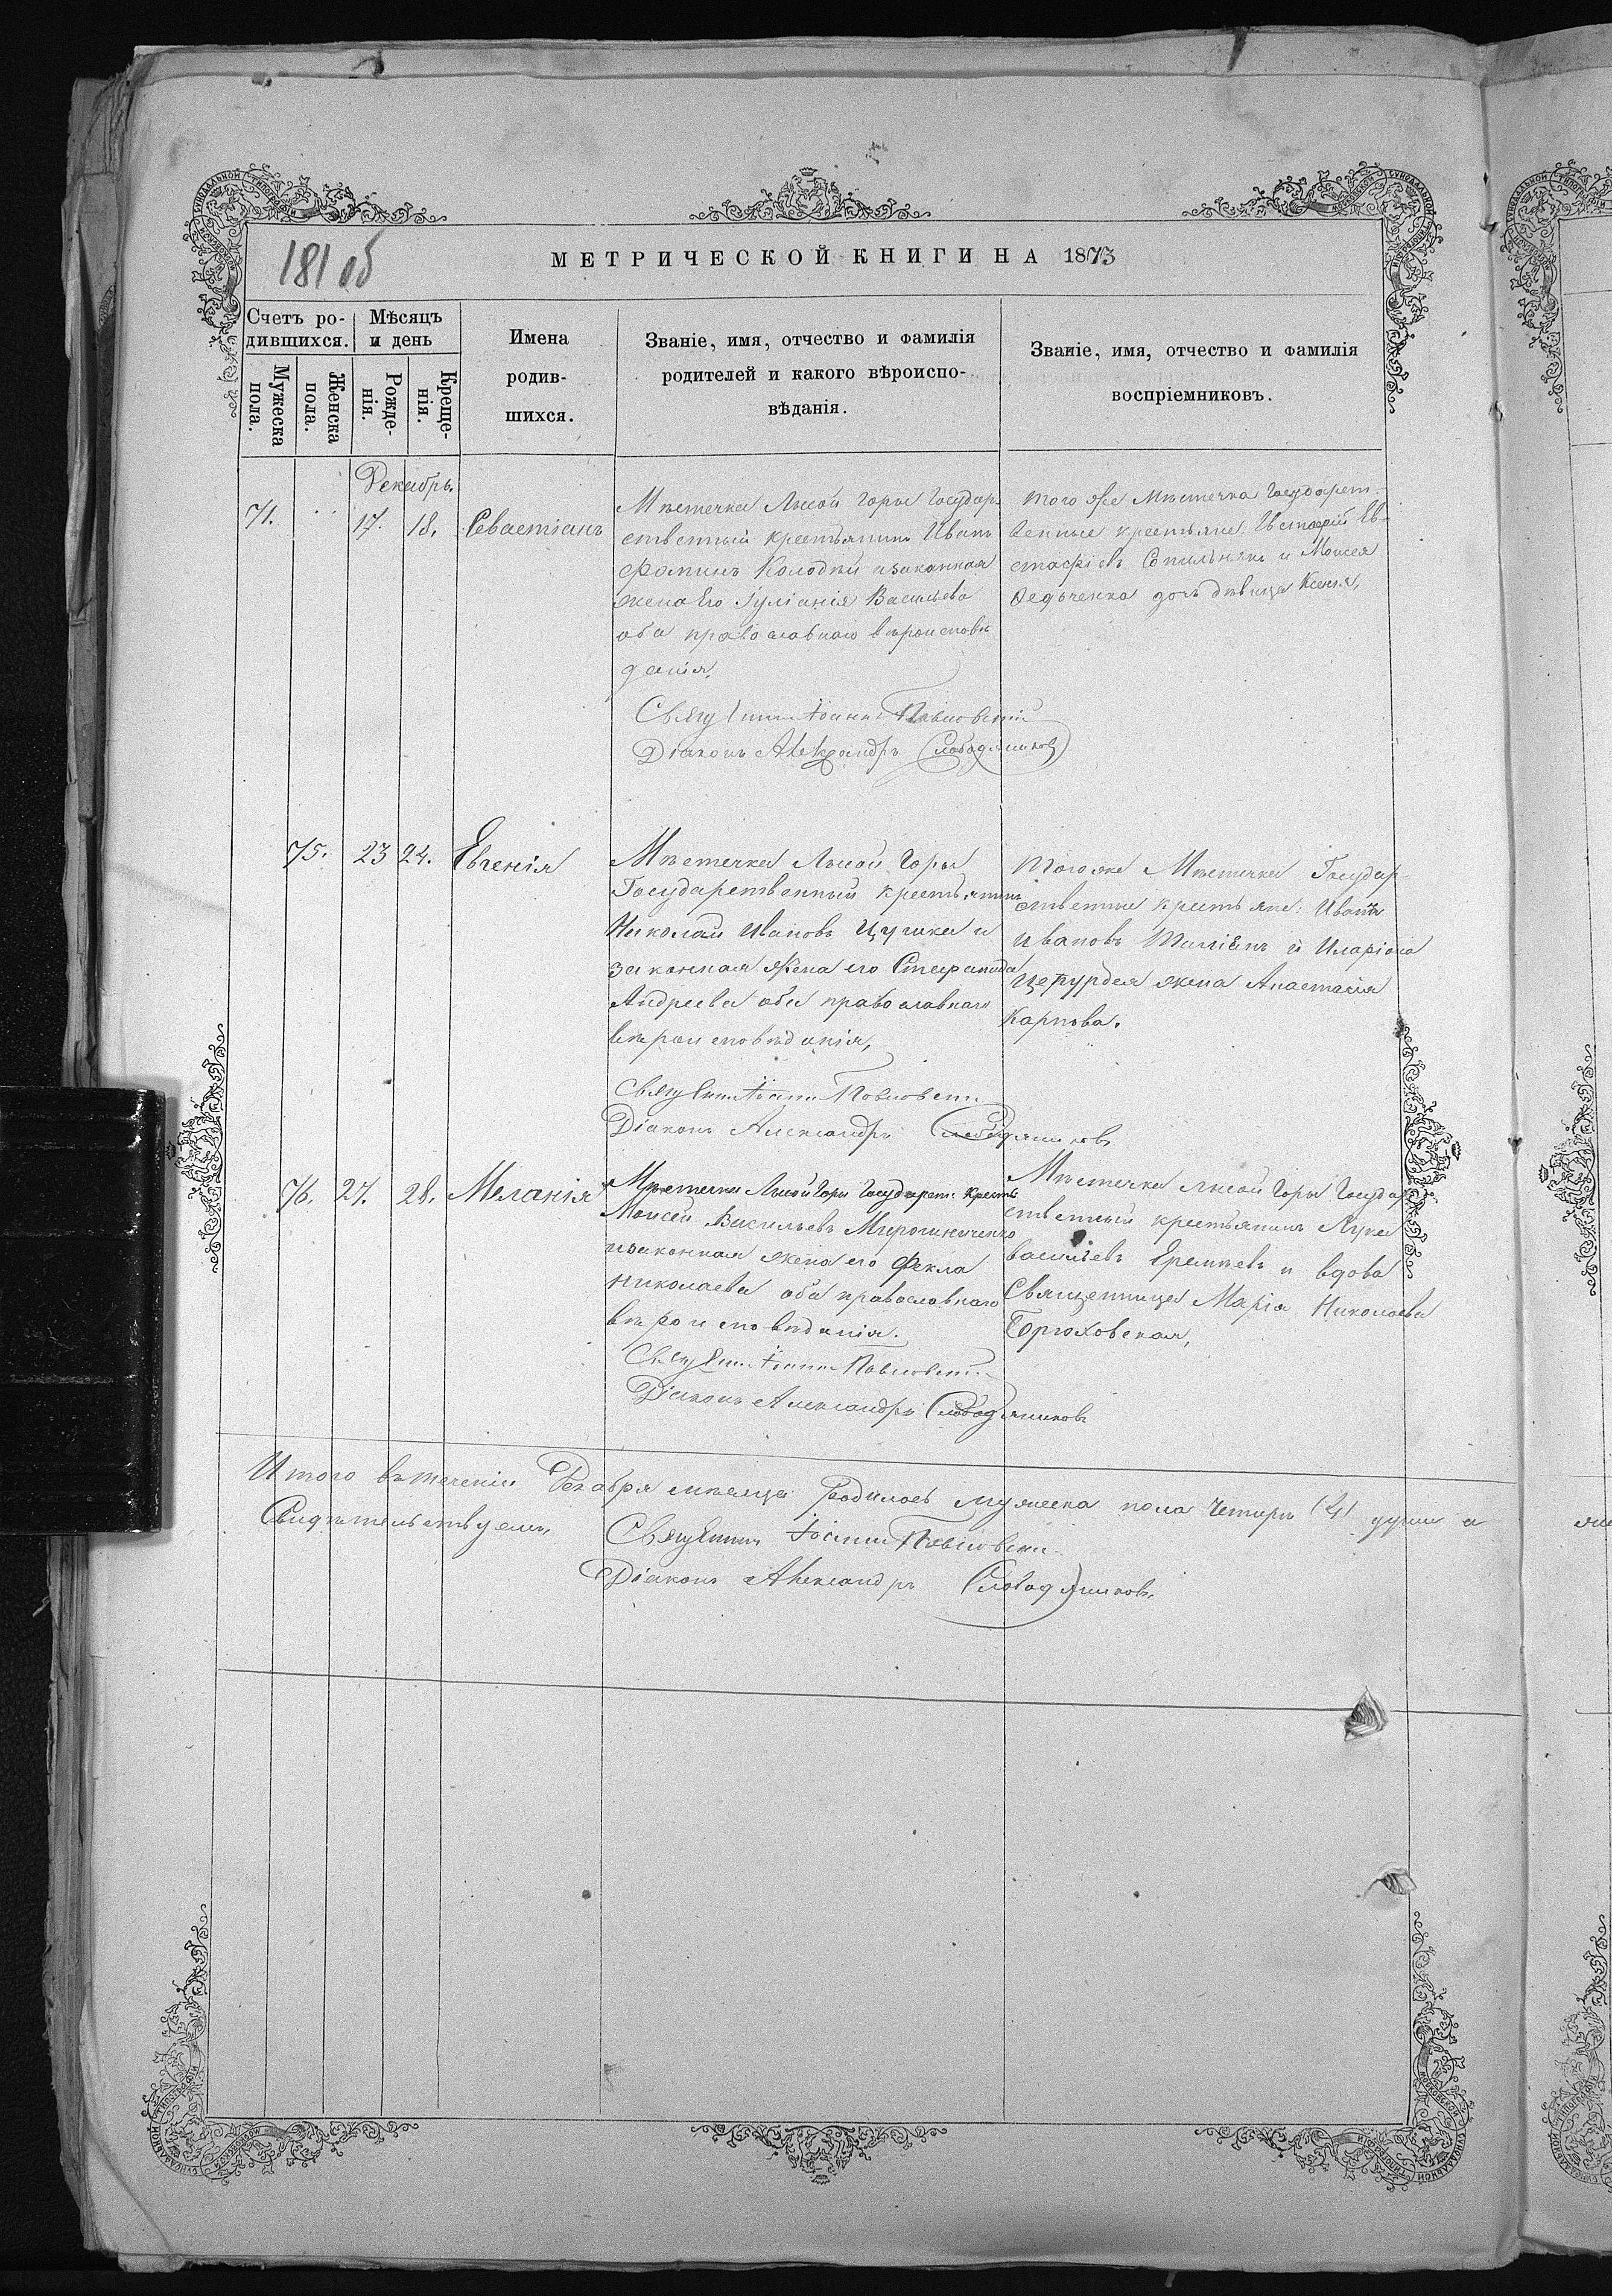 181 об
МЕТРИЧЕСКОЙ КНИГИ НА 1873
Счетъ ро-
дившихся.
Мѣсяцъ
и день
Мужеска
пола.
Женска
пола.
Рожде-
нія.
Креще-
нія.
Имена
родив-
шихся.
Званіе, имя, отчество и фамилія
родителей и какого вѣроиспо-
вѣданія.
Званіе, имя, отчество и фамилія
воспріемниковъ.
Декабрь.
71.
17.
18.
Севастіанъ
Мѣстечка Лысой Горы Государ-
ственный крестьянинъ Иванъ
Фоминъ Колодій и законная
жена его Іуліанія Васильева
оба православнаго вѣроисповѣ
данія,
Священникъ Іоаннъ Павловскій
Діаконъ Александръ Слободяниковъ
того же Мѣстечка Государст-
венные крестьяне Евстафій Ев-
стафіевъ Сопильнякъ и Моисея
дочь дѣвица Ксенія,
75.
23
24.
Евгенія
Мѣстечка Лысой Горы
Государственный крестьянинъ
Николай Ивановъ и
законная жена его Стефанида
Андреева оба православнаго
вѣроисповѣданія,
Священникъ Іоаннъ Павловскій
Діаконъ Александръ Слободяниковъ
того же Мѣстечка Государ-
ственные крестьяне: Иванъ
Ивановъ и Иларіона
жена Анастасія
Карпова.
76.
27.
28.
Меланія
Мѣстечка Лысой Горы Государст. крестьян
Моисей Васильевъ Мирошниченко
и законная жена его Фекла
Николаева оба православнаго
вѣроисповѣданія.
Священникъ Іоаннъ Павловскій
Діаконъ Александръ Слободяниковъ
Мѣстечка Лысой Горы Государ
ственный крестьянинъ Лука
Васильевъ Еремѣевъ и вдова
Священница Марія Николаева
Брюховская,
Итого въ теченіи Декабря мѣсяца родилось мужеска пола четыре (4) души а
Свидѣтельствуемъ
Священникъ Іоаннъ Павловскій
Діаконъ Александръ Слободяниковъ.